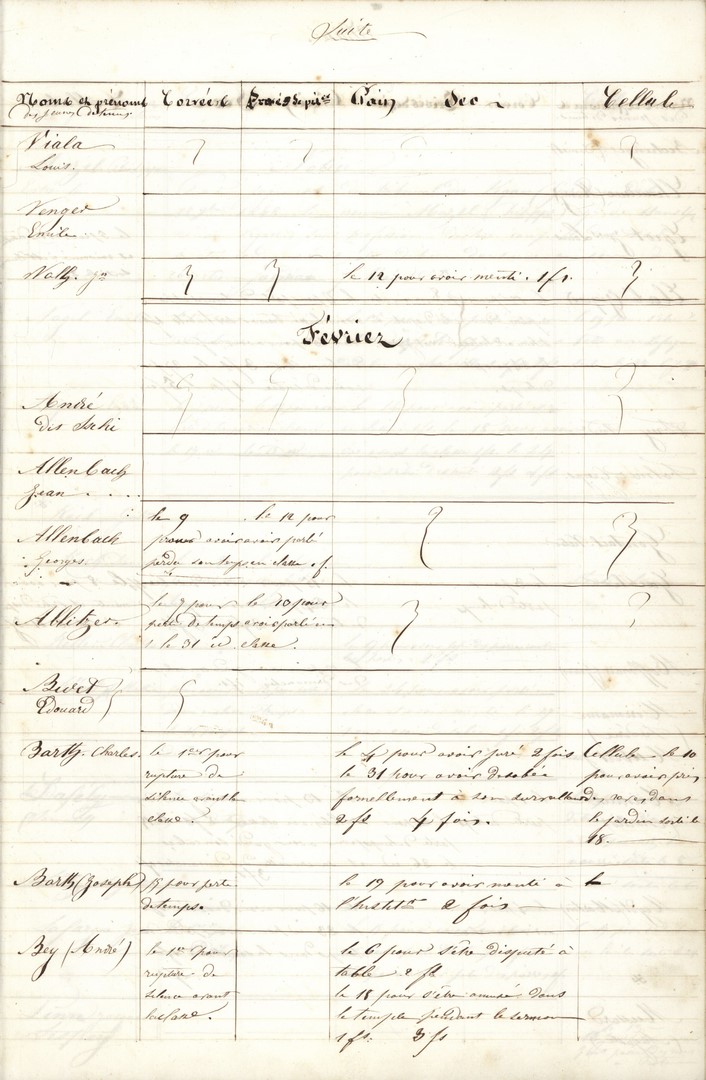 Suite
Noms et prénoms Corvée Privés de pitce Pain Sec Cellule
des jeunes détenus
Viala
Louis.
Venger
Emile.
le 12 pour avoir menti. 1 fs.
Février
André
dit
Allenbach
Jean . . . .
le 9 . le 12 pour
Allenbach pour avoir avoir parlé
Georges. perdu son temps en classe
le 9 pour le 10 pour
Ablitzer perte de temps avoir parlé en
1 le 31 id classe.
Bivet
Edouard
Barth. Charles. le 1er pour le 4 pour avoir juré 2 fois Cellule le 10
rupture de le 31 pour avoir désobéi pour avoir pris
silence avant la formellement à son surveillant des dans
classe. 2 fs 4 fois. le jardin sorti le
18.
Barth (Joseph) pour perte le 19 pour avoir menti à
de temps. l'Institr 2 fois
Bey (André) le 1er pour le 6 pour s'être disputé à
rupture de table. 2 fs
silence avant le 18 pour s'être amusé dans
la classe. le temple pendant le sermon
1 fs. 3 fs